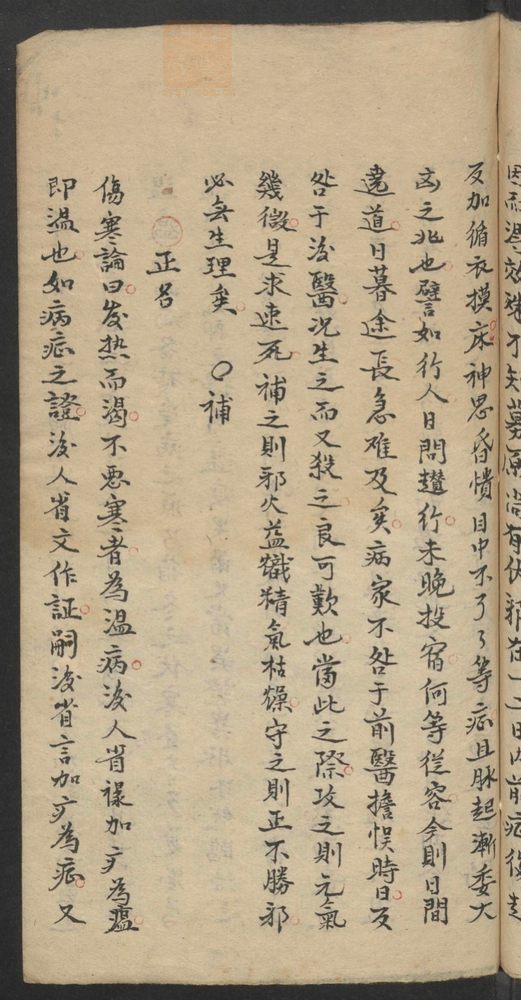 因而濕效殊不知募原尚有伏邪在一二日內前症復起
反加循衣摸床神思昏憒目中不了了等症且脉起漸委大
凶之兆也譬如行人日間趲行未晚投宿何等従容今則日間
遶道日暮途長急难及矣病家不咎于前醫擔悮時日反
咎于後醫况生之而又殺之良可歎也當此之際攻之則元氣
幾微是求速死補之則邪火益熾精氣枯燥守之則正不勝邪
必無生理矣 〇補
正名
傷寒論曰发热而渴不惡寒者為温病後人省禄加疒為瘟
即温也如病症之證後人省文作証嗣後省言加疒為症又